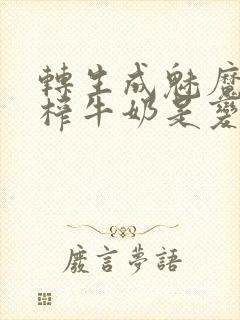 轉生成魅魔
榨牛奶是變
廢言夢語